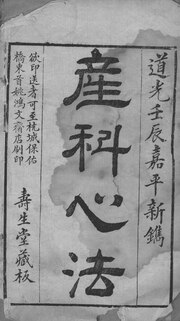 道光壬辰嘉平新鐫
產科心法
欲印送者可至杭城保佑
橋東首姚鴻文齋店刷印
壽生堂藏板